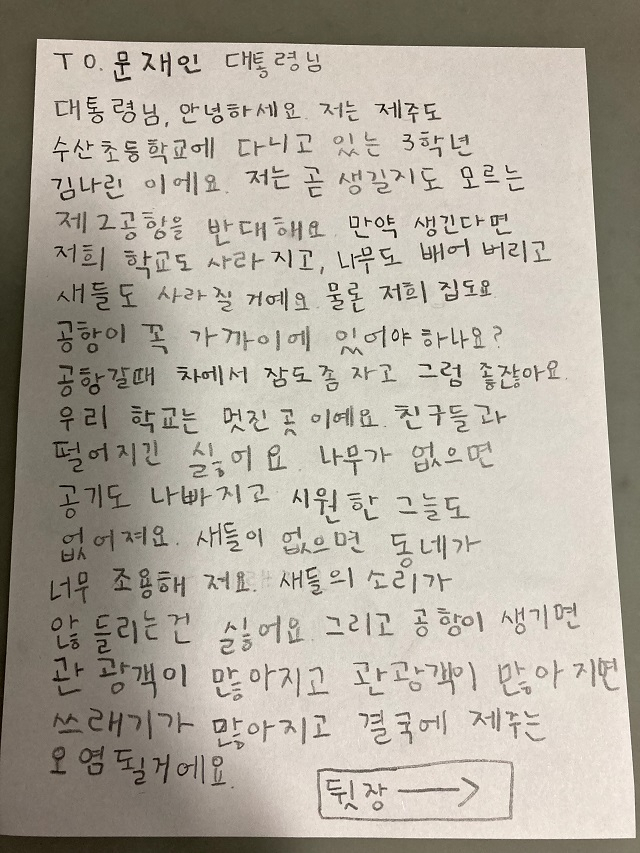 TO. 문재인 대통령님
대통령님, 안녕하세요. 저는 제주도
수산초등학교에 다니고 있는 3학년
김나린 이에요. 저는 곧 생길지도 모르는
제2공항을 반대해요. 만약 생긴다면
저희 학교도 사라지고, 나무도 배어 버리고
새들도 사라질 거예요. 물론 저희 집도요.
공항이 꼭 가까이에 있어야 하나요?
공항갈때 차에서 잠도 좀 자고 그럼 좋잖아요.
우리 학교는 멋진 곳 이예요. 친구들과
떨어지긴 싫어요. 나무가 없으면
공기도 나빠지고 시원한 그늘도
없어져요. 새들이 없으면 동네가
너무 조용해 져요. 새들의 소리가
않 들리는건 싫어요. 그리고 공항이 생기면
관광객이 많아지고 관광객이 많아 지면
쓰래기가 많아지고 결국에 제주는
오염될거에요.
뒷장 →